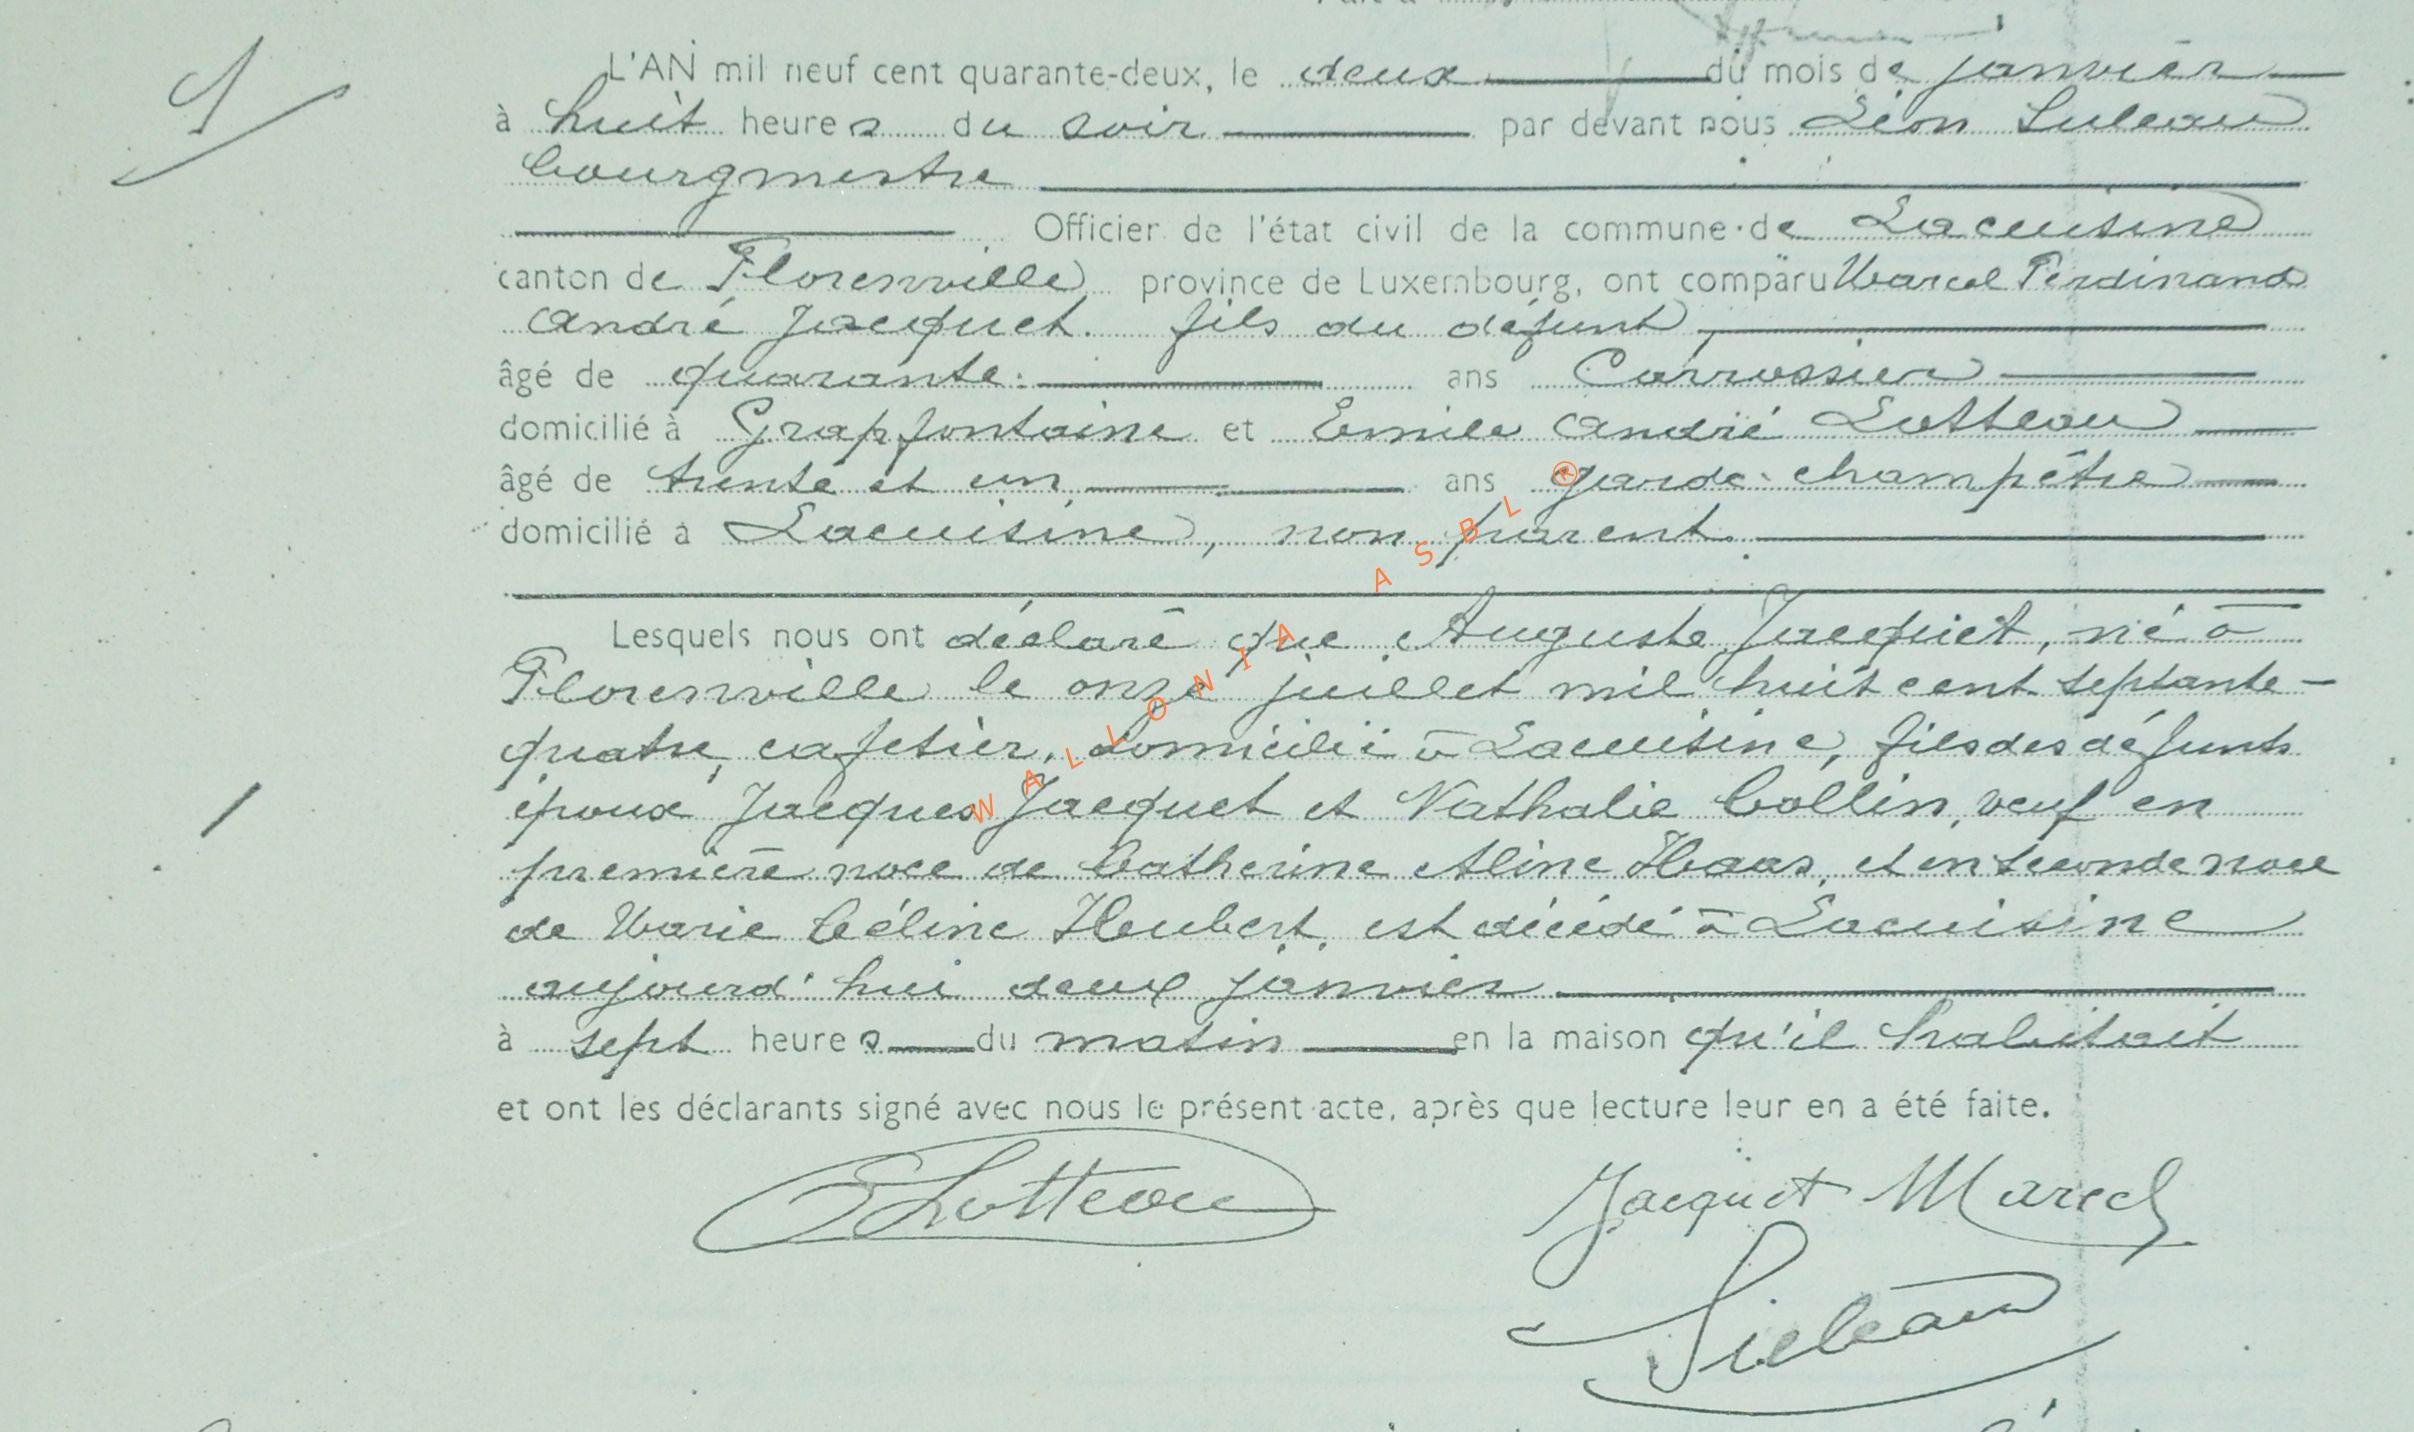 1
L'AN mil neuf cent quarante-deux, le deux du mois de janvier
à huit heures du soir par devant nous Léon Suleau
bourgmestre
Officier de l'état civil de la commune de Lacuisine
canton de Florenville province de Luxembourg, ont comparu Marcel Ferdinand
André Jacquet. fils du défunt,
âgé de quarante. ans Carrossier
domicilié à Grapfontaine et Emile André Lotteau
âgé de trente et un ans garde-champêtre
domicilié à Lacuisine, non parent.
Lesquels nous ont déclaré que Auguste Jacquet, né à
Florenville le onze juillet mil huit cent septante-
quatre, cafetier, domicilié à Lacuisine, fils des défunts
époux Jacques Jacquet et Nathalie Collin, veuf en
première noce de Catherine Aline Haas, et en seconde noce
de Marie Céline Hubert, est décédé à Lacuisine
aujourd'hui deux janvier
à sept heures du matin en la maison qu'il habitait
et ont les déclarants signé avec nous le présent acte, après que lecture leur en a été faite.
E Lotteau
Jacquet Marcel
Suleau
WALLONIA ASBL ®